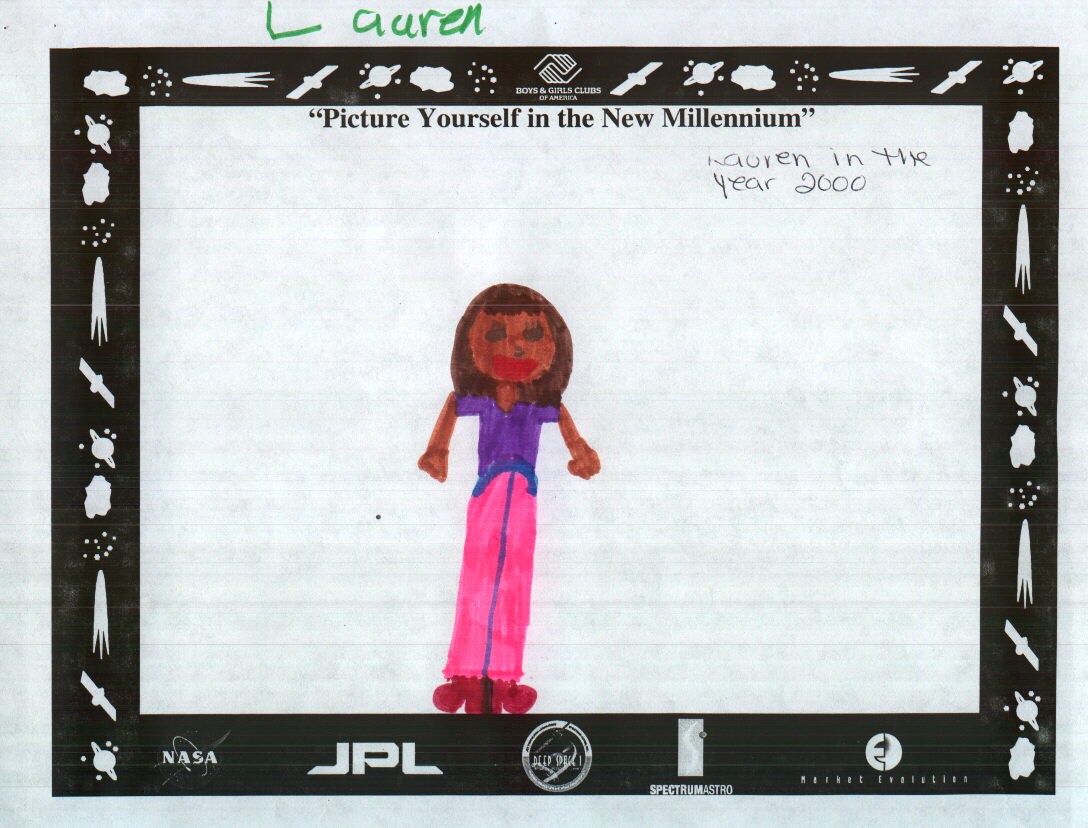 Lauren
BOYS & GIRLS CLUBS
OF AMERICA
“Picture Yourself in the New Millennium”
Lauren in the
year 2000
NASA
JPL
DEEP SPACE 1
SPECTRUMASTRO
Market Evolution